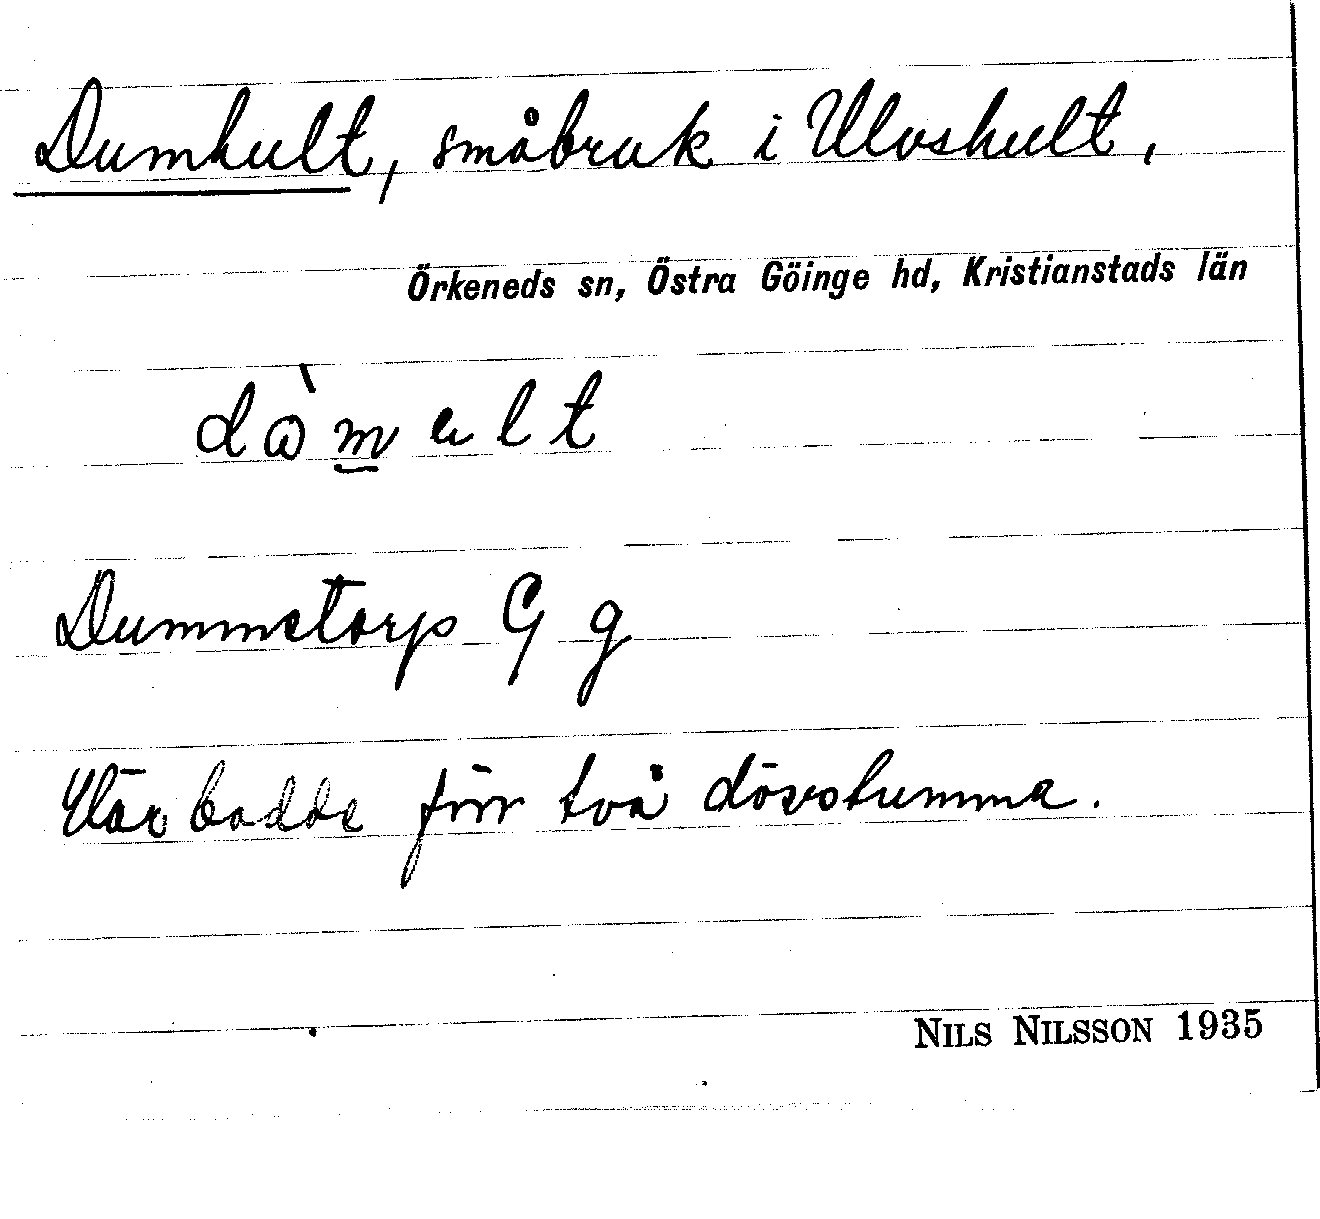 Dumhult, småbruk i Ulvshult,
Örkeneds sn, Östra Göinge hd, Kristianstads län
dòmult
Dummetorp G g
Här bodde förr två dövstumma.
NILS NILSSON 1935